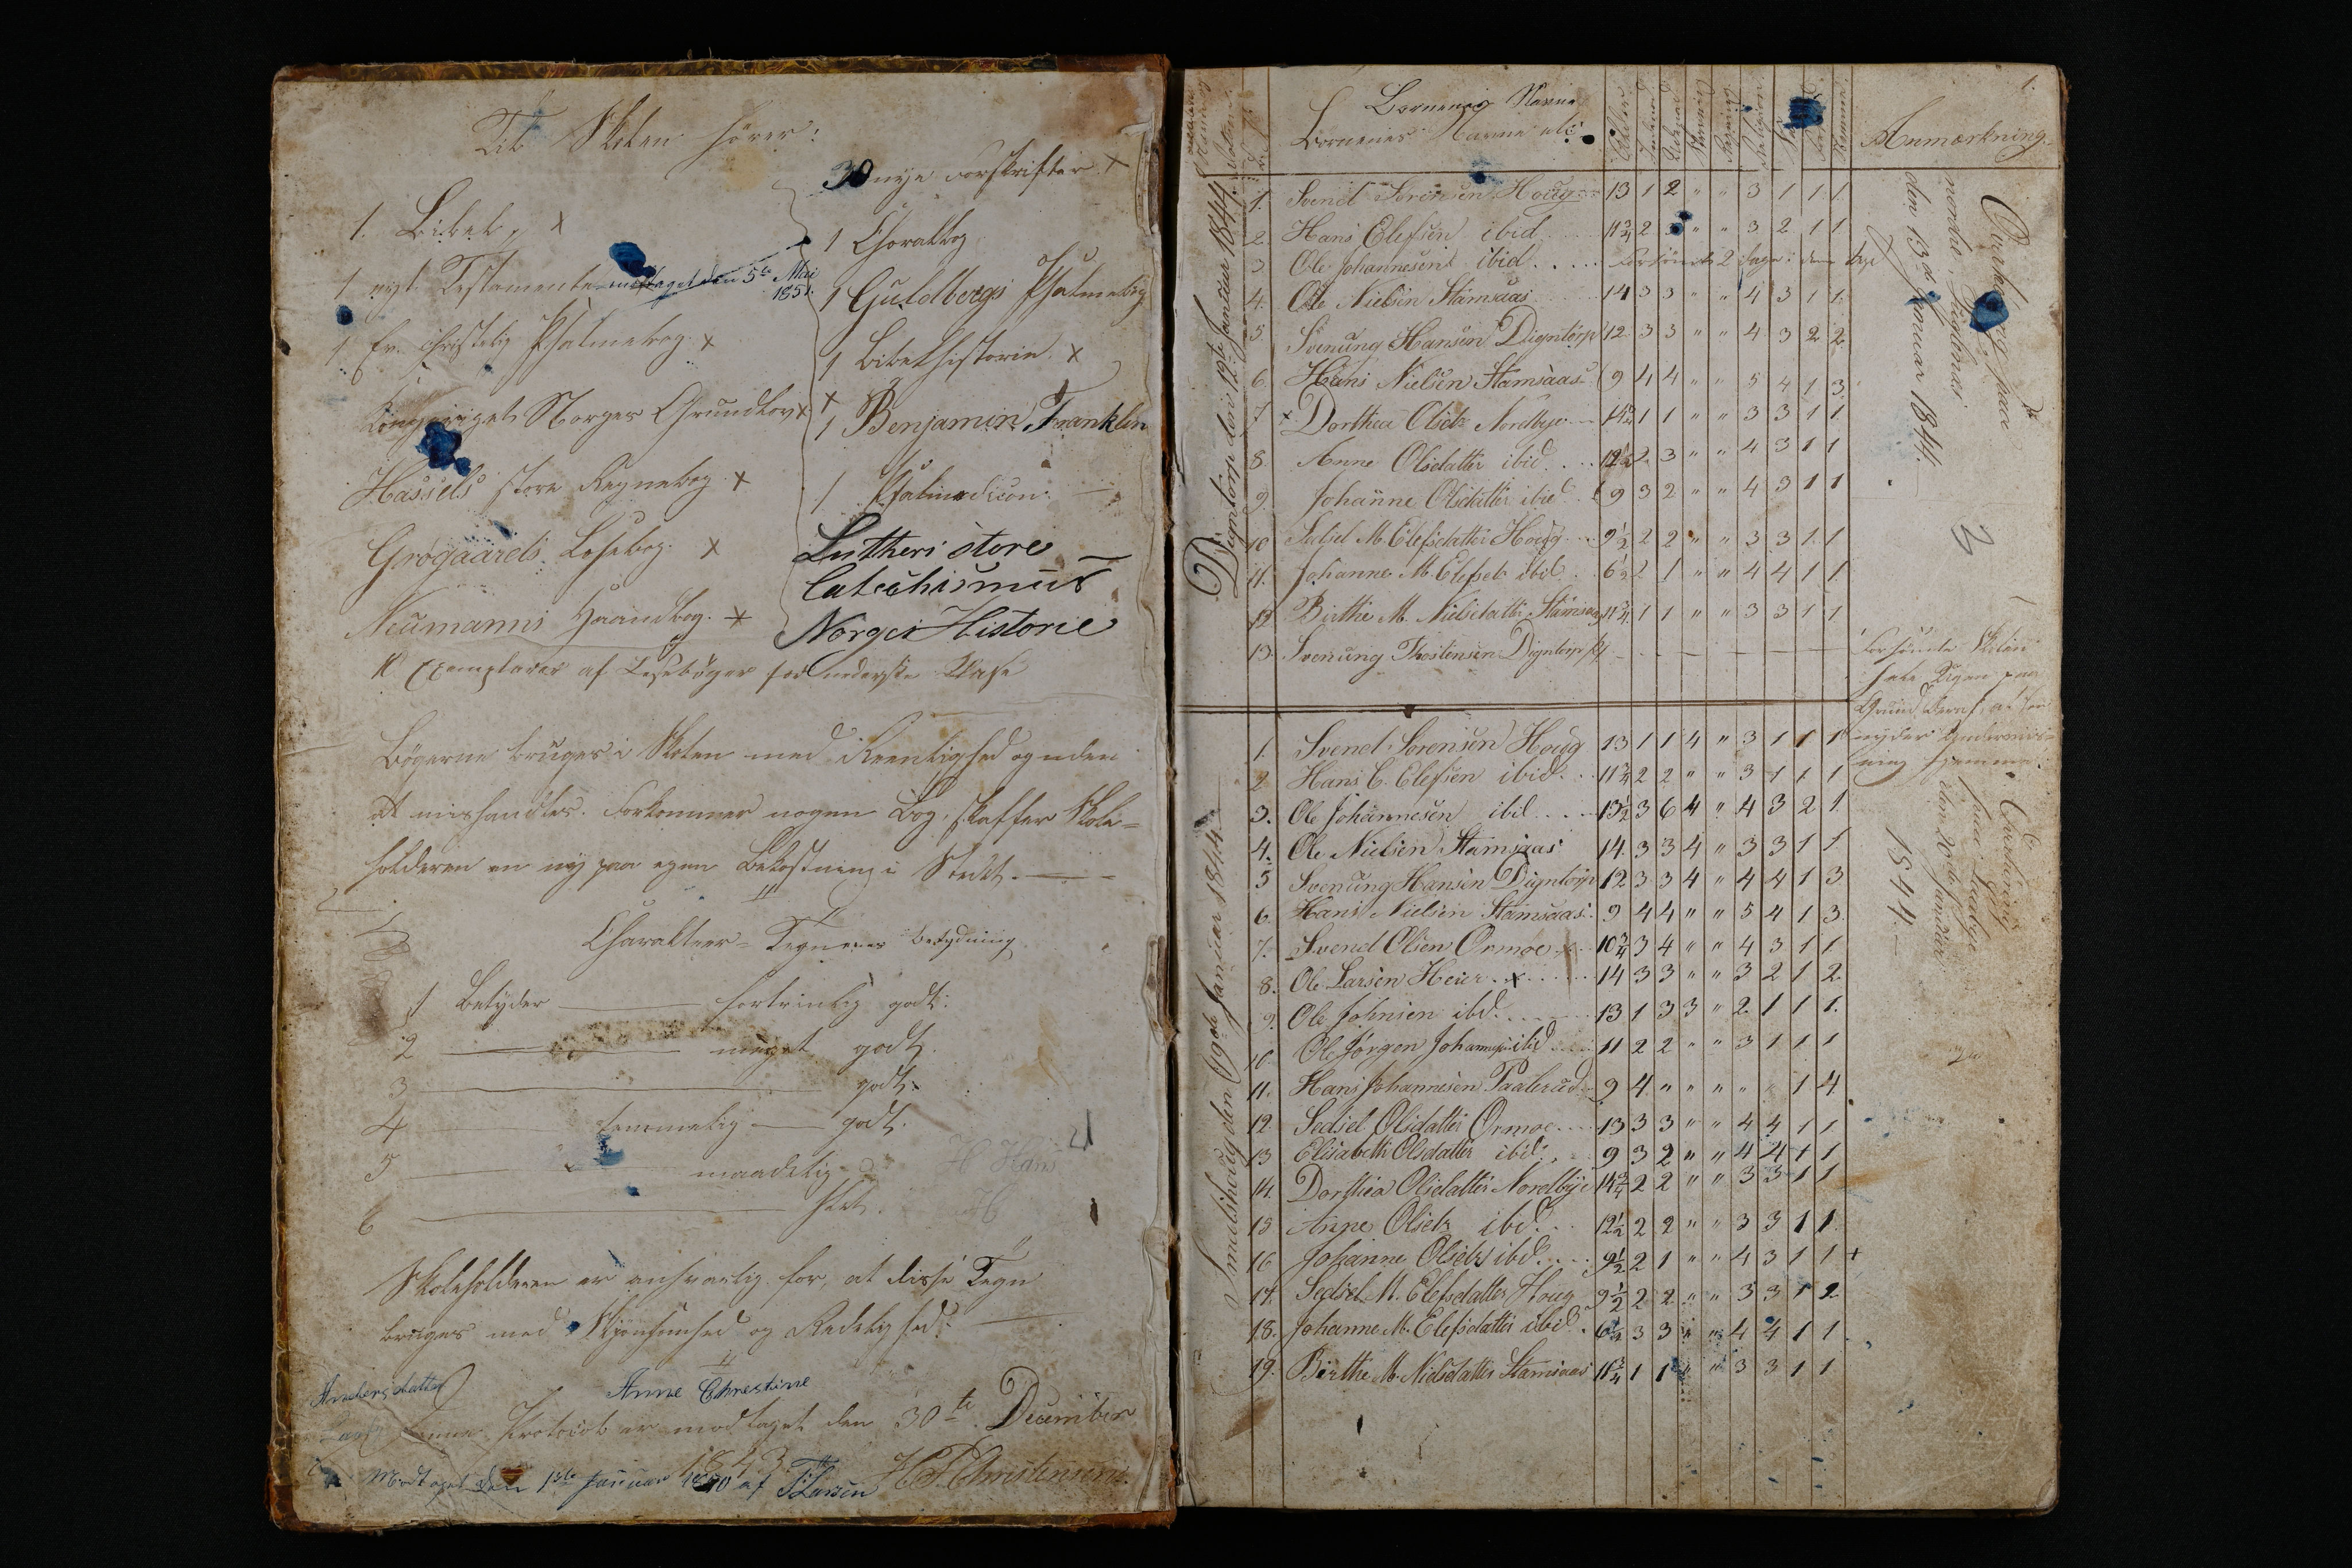 Til Skolen hörer:
1. Bibel, x
1 nyt Testamente modtaget den 5te Mai 1851.
1 Ev. christelig Psalmebog. x
Kongeriget Norges Grundlov x
Hassels store Regnebog. x
Grøgaards Læsebog. x
Neumanns Haandbog. x
30 nye Forskrifter. x
1 Choralbog
1 Guldbergs Psalmebog
1 Bibelhistorie. x
x 1 Benjamin Franklin
1 Psalmodicon.
Lutheri store
Catechismus
Norges Historie
Exemplarer af Læsebøger for nederste Klasse
Bögerne bruges i Skolen med Reenlighed og uden
at mishandles. Forkommer nogen Bog, skaffer Skole=
holderen en ny paa egen Bekostning i Stedet.
Charakteer=Tegnenes Betydning
1 Betyder fortrinlig godt:
2 meget godt.
3 godt.
4 temmelig godt.
5 maadelig
6 slet.
H Hans
H
Skoleholderen er ansvarlig for, at disse Tegn
bruges med Skjönsomhed og Redelighed.
Andersdatter Anne Christine
Denne Protocol er modtaget den 30te December
1843. H.P. Christensen.
Modtaget den 1ste Januar af T. Larsen
1.
Börnenes Navne
Börnenes Navne
Alder
Religion
Anmærkning.
Digntorp den 12te Januar 1844
1. Svend Sörensen Houg 13 1 2 " " 3 1 1 1
2. Hans Elefsen ibid 11 3/4 2 " " 3 2 1 1
3 Ole Johannesen ibid. Forsömt 2 Dage
4. Ole Nielsen Stamsaas 14 3 3 " " 4 3 1 1.
5. Svenung Hansen Digntorp 12 3 3 " " 4 3 2 2
6. Hans Nielsen Stamsaas 9 4 4 " " 5 4 1 3
7. x Dorthea Olsdtr Nordbye 14 3/4 1 1 " " 3 3 1 1
8. Anne Olsdatter ibid. 12 1/2 2 3 " " 4 3 1 1
9. Johanne Olsdatter ibid 9 3 2 " " 4 3 1 1
10 Sedsel M. Elefsdatter Houg 9 1/2 2 2 " " 3 3 1 1
11. Johanne M. Elefsdtr ibid. 6 1/2 2 1 " " 4 4 1 1
12 Birthe M. Nielsdatter Stamsaas 11 3/4 1 1 " " 3 3 1 1
13. Svenung Thostensen Digntorp
den 13de Januar 1844.
Forsömte Skolen
hele Ugen paa
Grund deraf, at han
nyder Underviis-
ning hjemme.
Smutshoug den 19de Januar 1844
1. Svend Sörensen Houg 13 1 1 4 " 3 1 1 1
2 Hans C. Elefsen ibid. 11 3/4 2 2 " " 3 1 1 1
3. Ole Johannesen ibid 13 1/2 3 6 4 " 4 3 2 1
4. Ole Nielsen Stamsaas 14. 3 3 4 " 3 3 1 1
5 Svenung Hansen Digntorp 12 3 3 4 " 4 4 1 3
6. Hans Nielsen Stamsaas 9 4 4 " " 5 4 1 3.
7. Svend Olsen Ormoe x 10 3/4 3 4 " " 4 3 1 1
8. Ole Larsen Heier. x 14 3 3 " " 3 2 1 2
9. Ole Johnsen ibd. 13 1 3 3 " 2 1 1 1.
10. Ole Jörgen Johannesen ibid 11 2 2 " " 3 1 1 1
11. Hans Johannesen Paalerud 9 4 " " " " " 1 4
12 Sedsel Olsdatter Ormoe 13 3 3 " " 4 4 1 1
13 Elisabeth Olsdatter ibid. 9 3 2 " " 4 4 1 1
14. Dorthea Olsdatter Nordbye 14 3/4 2 2 " " 3 3 1 1
15 Anne Olsdtr ibd. 12 1/2 2 2 " " 3 3 1 1
16 Johanne Olsdtr ibd. 9 1/2 2 1 " " 4 3 1 1 +
17. Sedsel M. Elefsdatter Houg 9 1/2 2 2 " " 3 3 1 2
18. Johanne M. Elefsdatter ibid. 6 1/2 3 3 " " 4 4 1 1
19. Birthe M. Nielsdatter Stamsaas 11 3/4 1 1 " " 3 3 1 1
den 20de Januar
1844.